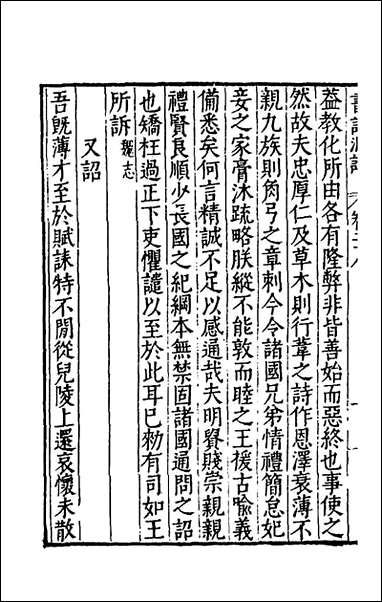 益教化所由各有隆弊非皆善始而惡終也事使之
然故夫忠厚仁及草木則行葦之詩作恩澤衰薄不
親九族則角弓之章刺今令諸國兄弟情禮簡怠妃
妾之家膏沐疏略朕縱不能敦而睦之王援古喻義
備悉矣何言精誠不足以感通哉夫明貴賤崇親親
禮賢良順少長國之紀綱本無禁固諸國通問之詔
也矯枉過正下吏懼譴以至於此耳已勑有司如王
所訴魏志
又詔
吾既薄才至於賦誄特不閒從兒陵上還哀懷未散